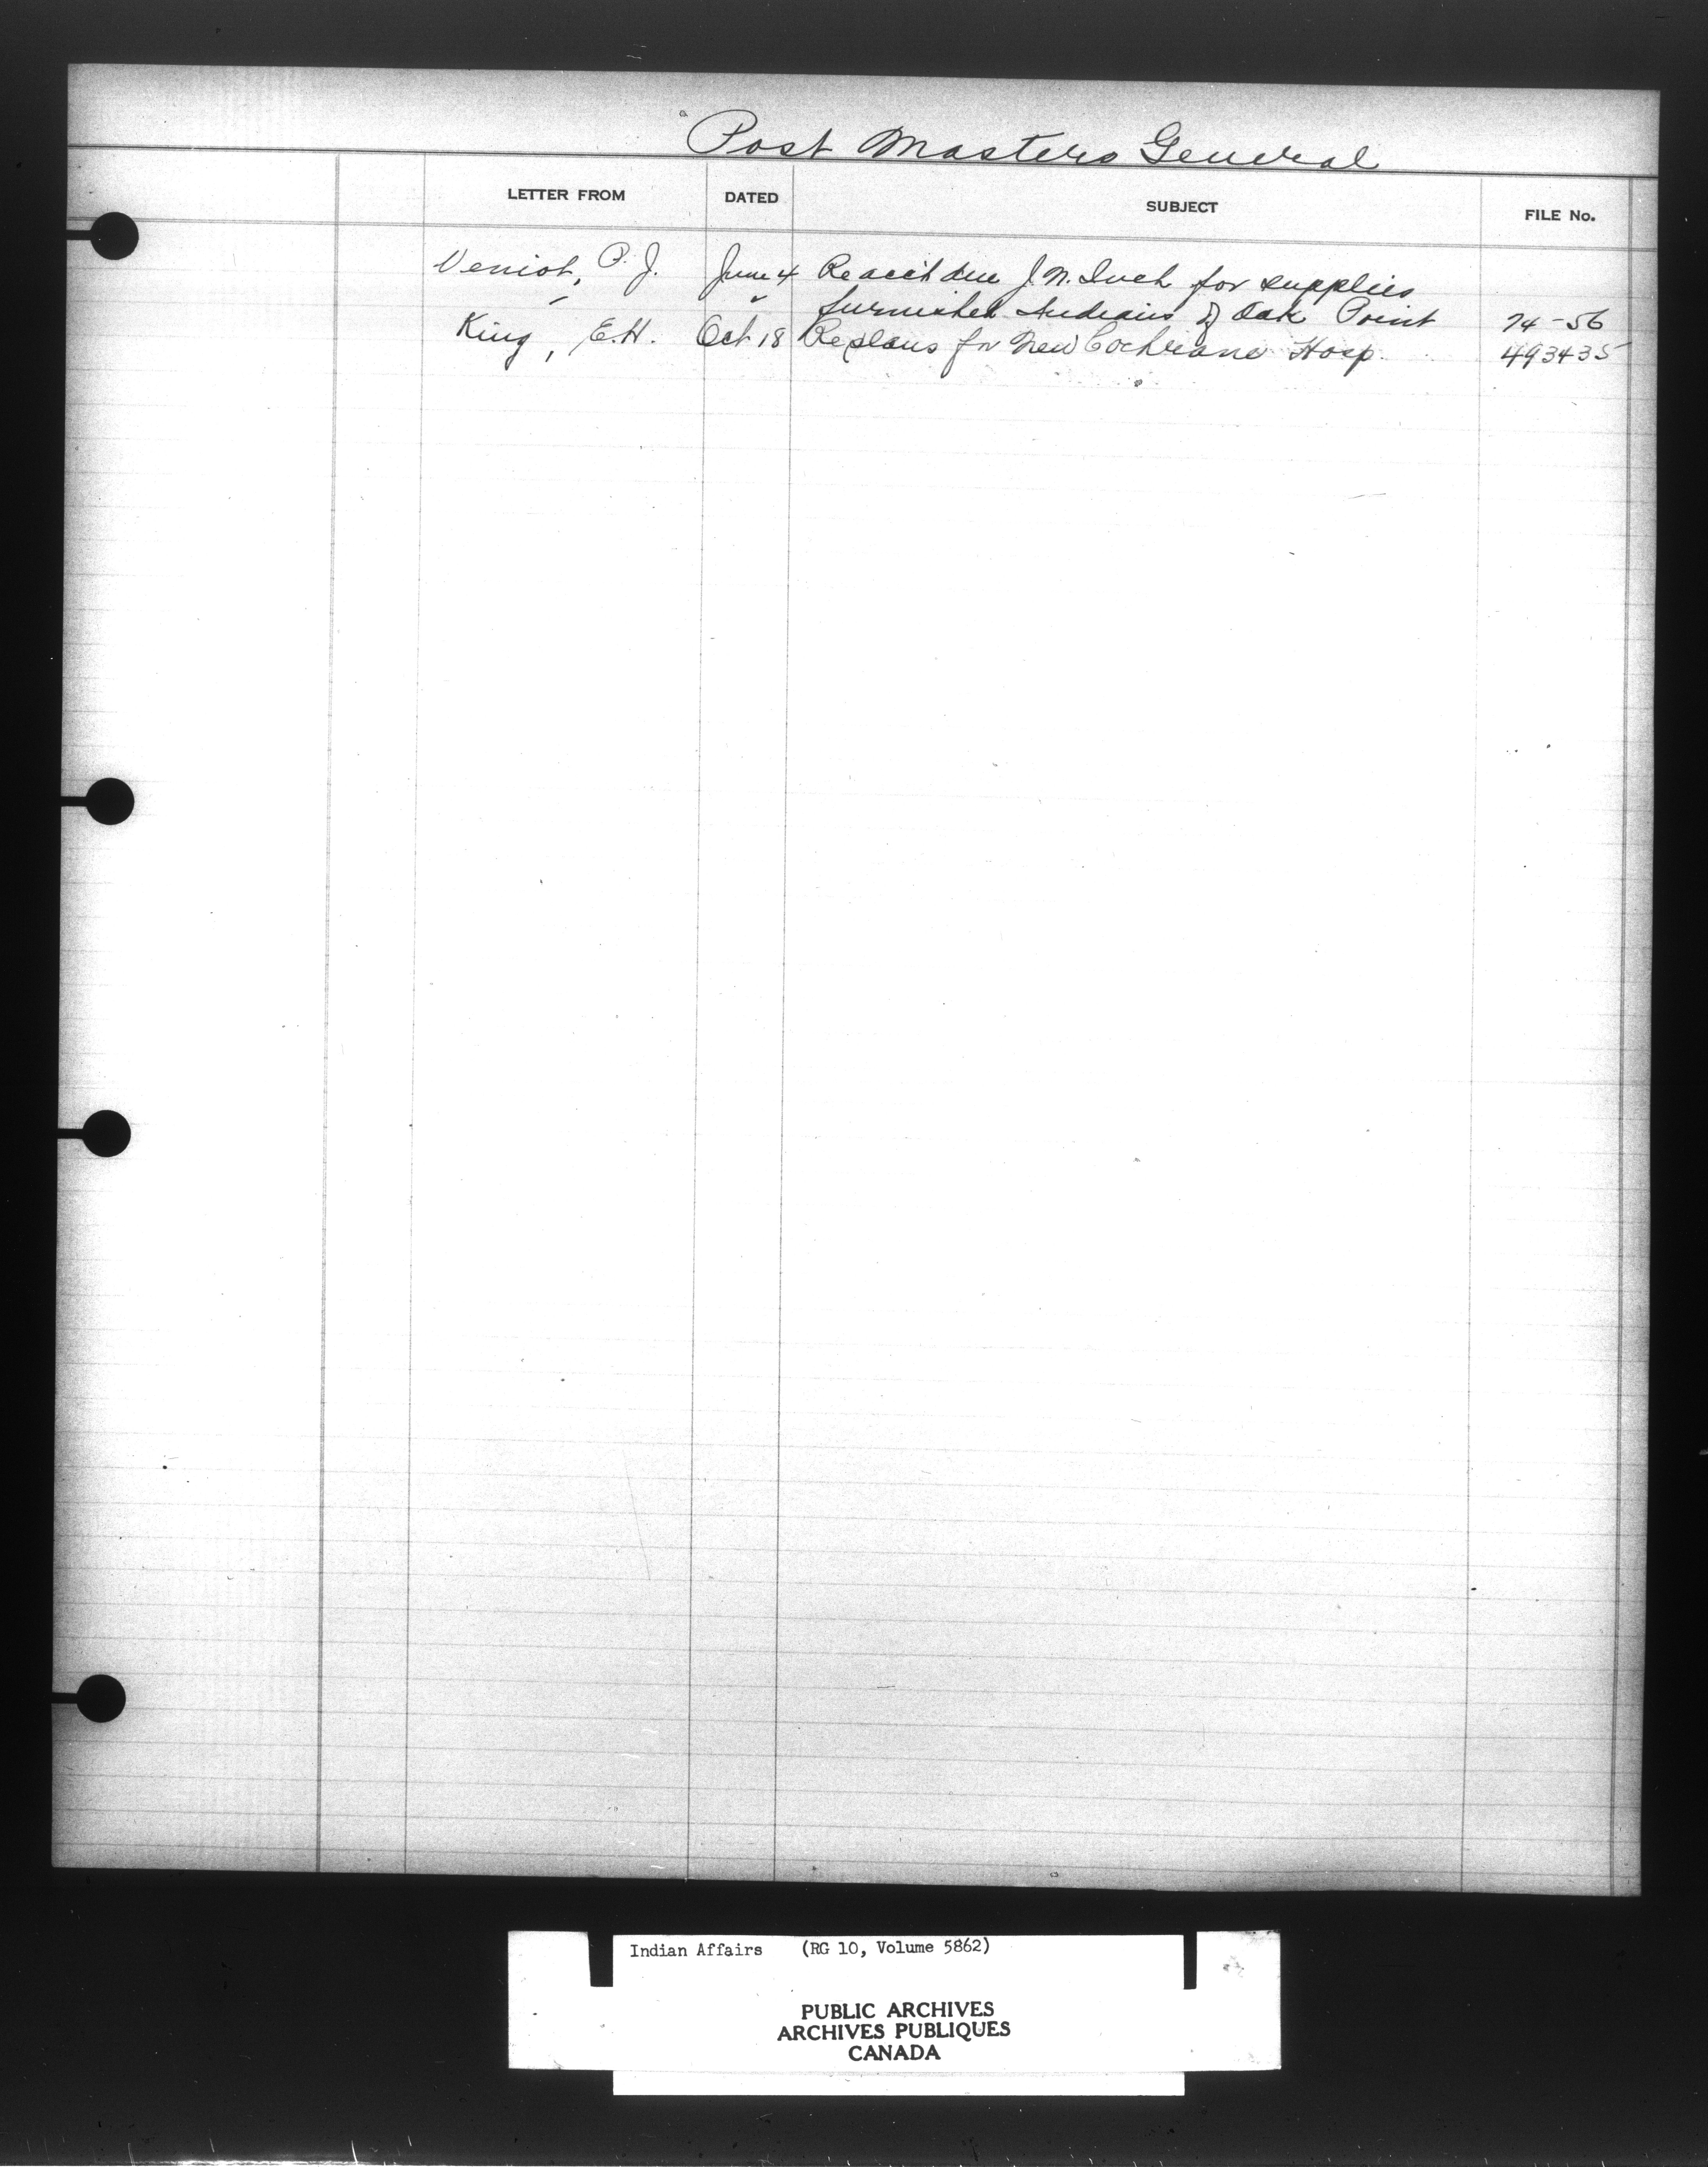 Post Masters General
LETTER FROM DATED SUBJECT FILE No.
Veniot, P. J. June 4 Re acc't due J. N. for supplies
furnished Indians of Oak Point 74-56
King, E.H. Oct 18 Re plans for New Cochrane Hosp. 493435
Indian Affairs (RG 10, Volume 5862)
PUBLIC ARCHIVES
ARCHIVES PUBLIQUES
CANADA